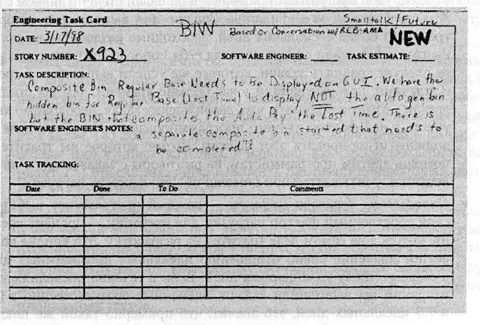 Engineering Task Card
BIW
Smalltalk/Future
Based on Conversation w/ REB:AMA
DATE: 3/17/98
NEW
STORY NUMBER: X923
SOFTWARE ENGINEER:
TASK ESTIMATE:
TASK DESCRIPTION:
Composite Bin Regular Base Needs to Be Displayed on GUI. We have the
hidden bin for Regular Base (Lost Time) to display NOT the autogen bin
but the BIN that composites the Auto Pay & the Lost Time. There is
SOFTWARE ENGINEER'S NOTES:
a separate composite bin started that needs to
be completed??
TASK TRACKING:
Date Done To Do Comments